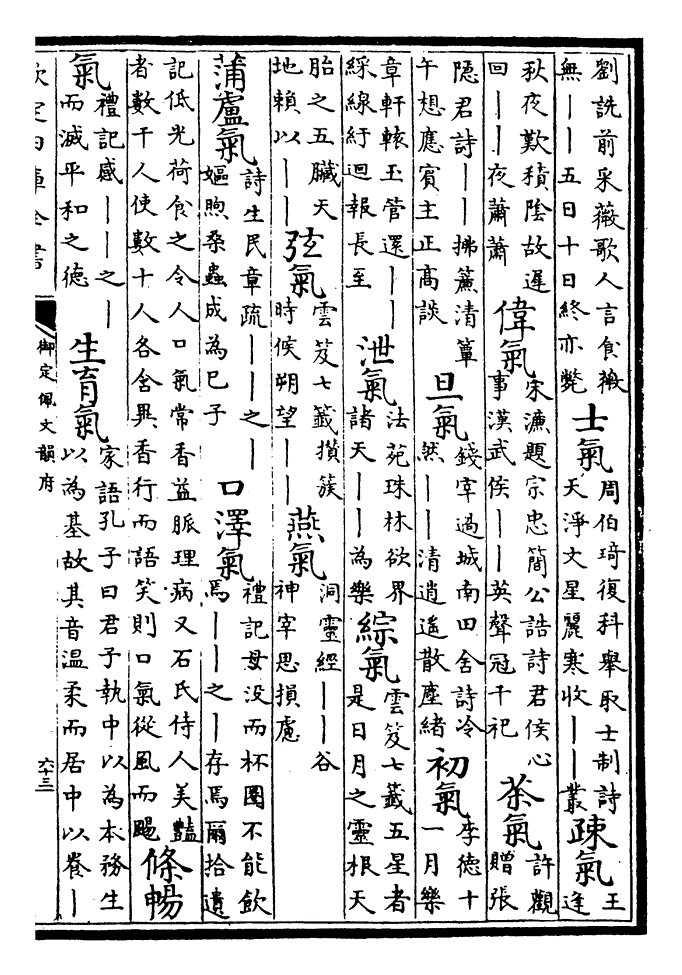 劉詵前采薇歌人言食薇無｜｜五日十日終亦斃 士氣 周伯琦復科舉取士制詩天淨文星麗寒收｜｜叢 疎氣 王逢
秋夜歎積陰故遲回｜｜夜蕭蕭 偉氣 宋濂題宗忠簡公誥詩君侯心事漢武侯｜｜英聲冠千祀 茶氣 許觀贈張
隱君詩｜｜拂簾清簟午想應賓主正高談 旦氣 錢宰過城南田舍詩冷然｜｜清逍遙散塵緒 初氣 李德十一月樂
章軒轅玉管還｜｜綵線紆迴報長至 泄氣 法苑珠林欲界諸天｜｜為樂 綜氣 雲笈七籤五星者是日月之靈根天
胎之五臟天地賴以｜｜ 弦氣 雲笈七籤攢簇時候朔望｜｜ 燕氣 洞靈經｜｜谷神宰思損慮
蒲盧氣 詩生民章疏｜｜之｜嫗煦桑蟲成為已子 口澤氣 禮記母没而杯圈不能飲焉｜｜之｜存焉爾拾遺
記低光荷食之令人口氣常香益脈理病又石氏侍人美豔者數千人使數十人各含異香行而語笑則口氣從風而颺 條暢
氣 禮記感｜｜之｜而滅平和之德 生育氣 家語孔子曰君子執中以為本務生以為基故其音温柔而居中以養｜
欽定四庫全書
御定佩文韻府
六十三